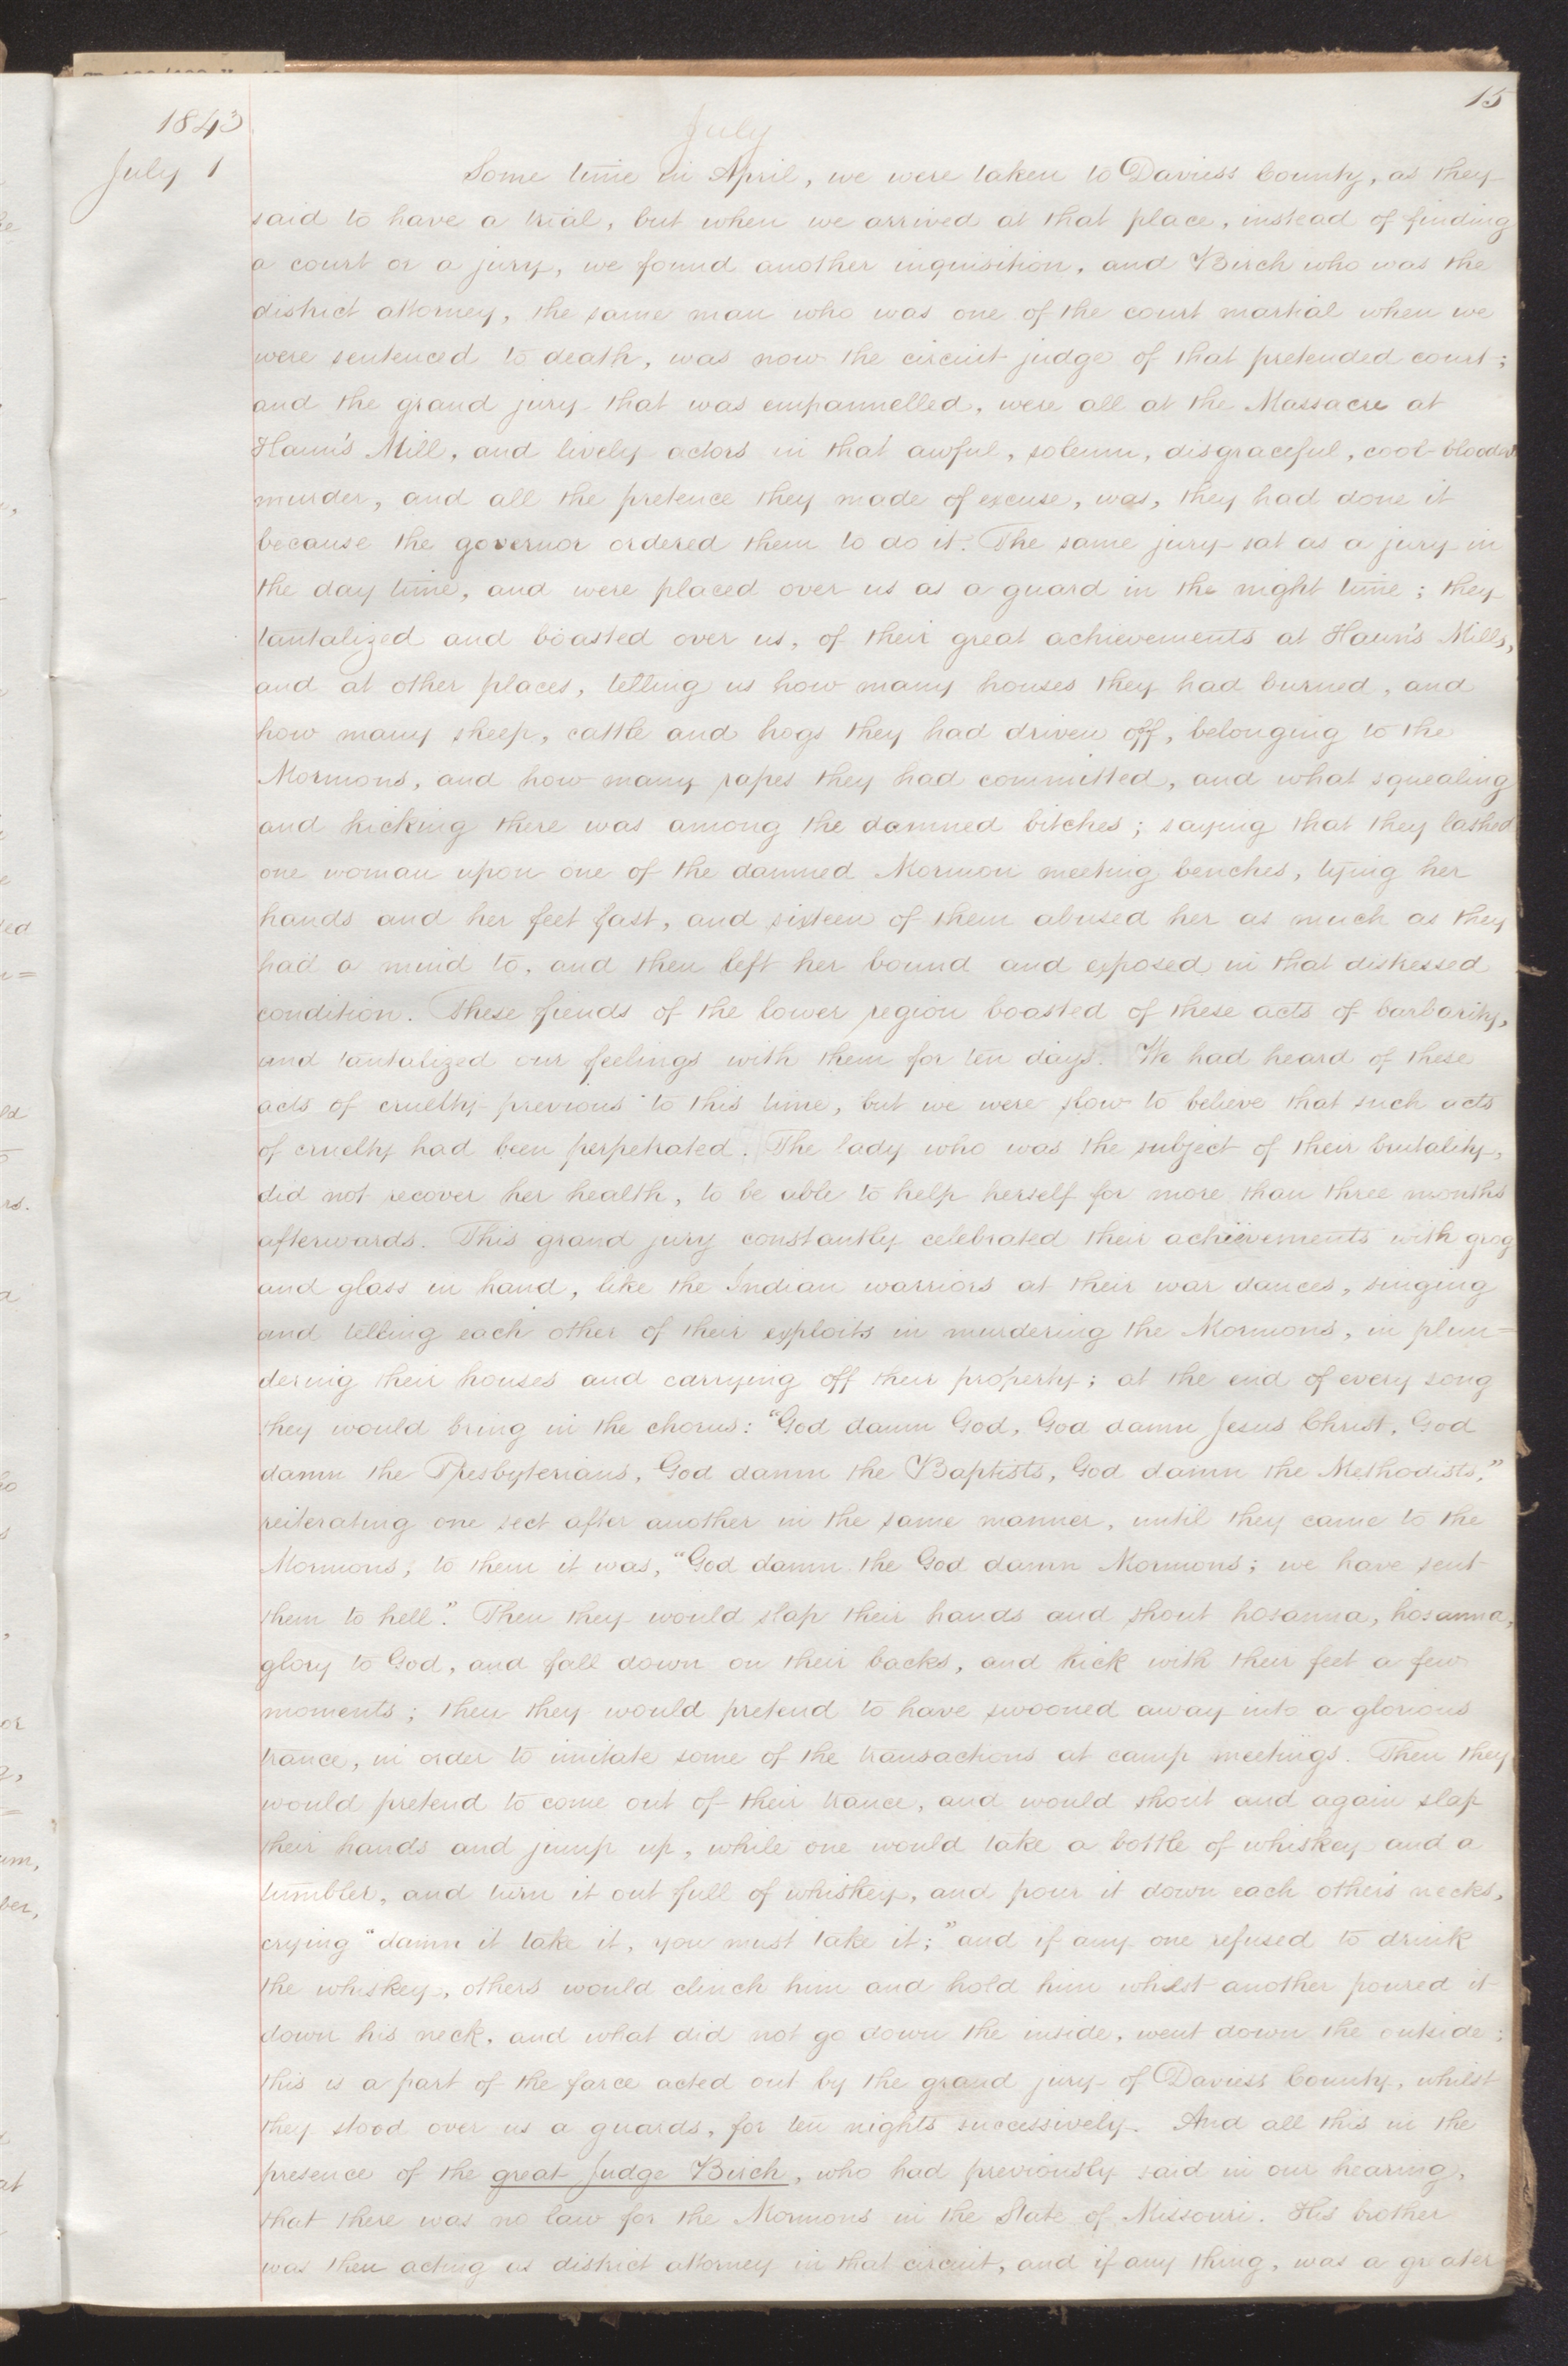 15
1843
July
July 1
Some time in April, we were taken to Daviess County, as they
said to have a trial, but when we arrived at that place, instead of finding
a court or a jury, we found another inquisition, and Birch who was the
district attorney, the same man who was one of the court martial when we
were sentenced to death, was now the circuit judge of that pretended court;
and the grand jury that was empannelled, were all at the Massacre at
Haun's Mill, and lively actors in that awful, solemn, disgraceful, cool-blooded
murder, and all the pretence they made of excuse, was, they had done it
because the governor ordered them to do it. The same jury sat as a jury in
the day time, and were placed over us as a guard in the night time; they
tantalized and boasted over us, of their great achievements at Haun's Mills,
and at other places, telling us how many houses they had burned, and
how many sheep, cattle and hogs they had driven off, belonging to the
Mormons, and how many rapes they had committed, and what squealing
and kicking there was among the damned bitches; saying that they lashed
one woman upon one of the damned Mormon meeting benches, tying her
hands and her feet fast, and sixteen of them abused her as much as they
had a mind to, and then left her bound and exposed in that distressed
condition. These fiends of the lower region boasted of these acts of barbarity,
and tantalized our feelings with them for ten days. We had heard of these
acts of cruelty previous to this time, but we were slow to believe that such acts
of cruelty had been perpetrated. The lady who was the subject of their brutality,
did not recover her health, to be able to help herself for more than three months
afterwards. This grand jury constantly celebrated their achievements with grog
and glass in hand, like the Indian warriors at their war dances, singing
and telling each other of their exploits in murdering the Mormons, in plun=
dering their houses and carrying off their property; at the end of every song
they would bring in the chorus: "God damn God, God damn Jesus Christ, God
damn the Presbyterians, God damn the Baptists, God damn the Methodists,"
reiterating one sect after another in the same manner, until they came to the
Mormons; to them it was, "God damn the God damn Mormons; we have sent
them to hell." Then they would slap their hands and shout hosanna, hosanna,
glory to God, and fall down on their backs, and kick with their feet a few
moments; then they would pretend to have swooned away into a glorious
trance, in order to imitate some of the transactions at camp meetings. Then they
would pretend to come out of their trance, and would shout and again slap
their hands and jump up, while one would take a bottle of whiskey and a
tumbler, and turn it out full of whiskey, and pour it down each others necks,
crying "damn it take it, you must take it;" and if any one refused to drink
the whiskey, others would clinch him and hold him whilst another poured it
down his neck, and what did not go down the inside, went down the outside;
this is a part of the farce acted out by the grand jury of Daviess County, whilst
they stood over us a guards, for ten nights successively. And all this in the
presence of the great Judge Birch, who had previously said in our hearing,
that there was no law for the Mormons in the State of Missouri. His brother
was then acting as district attorney in that circuit, and if any thing, was a greater